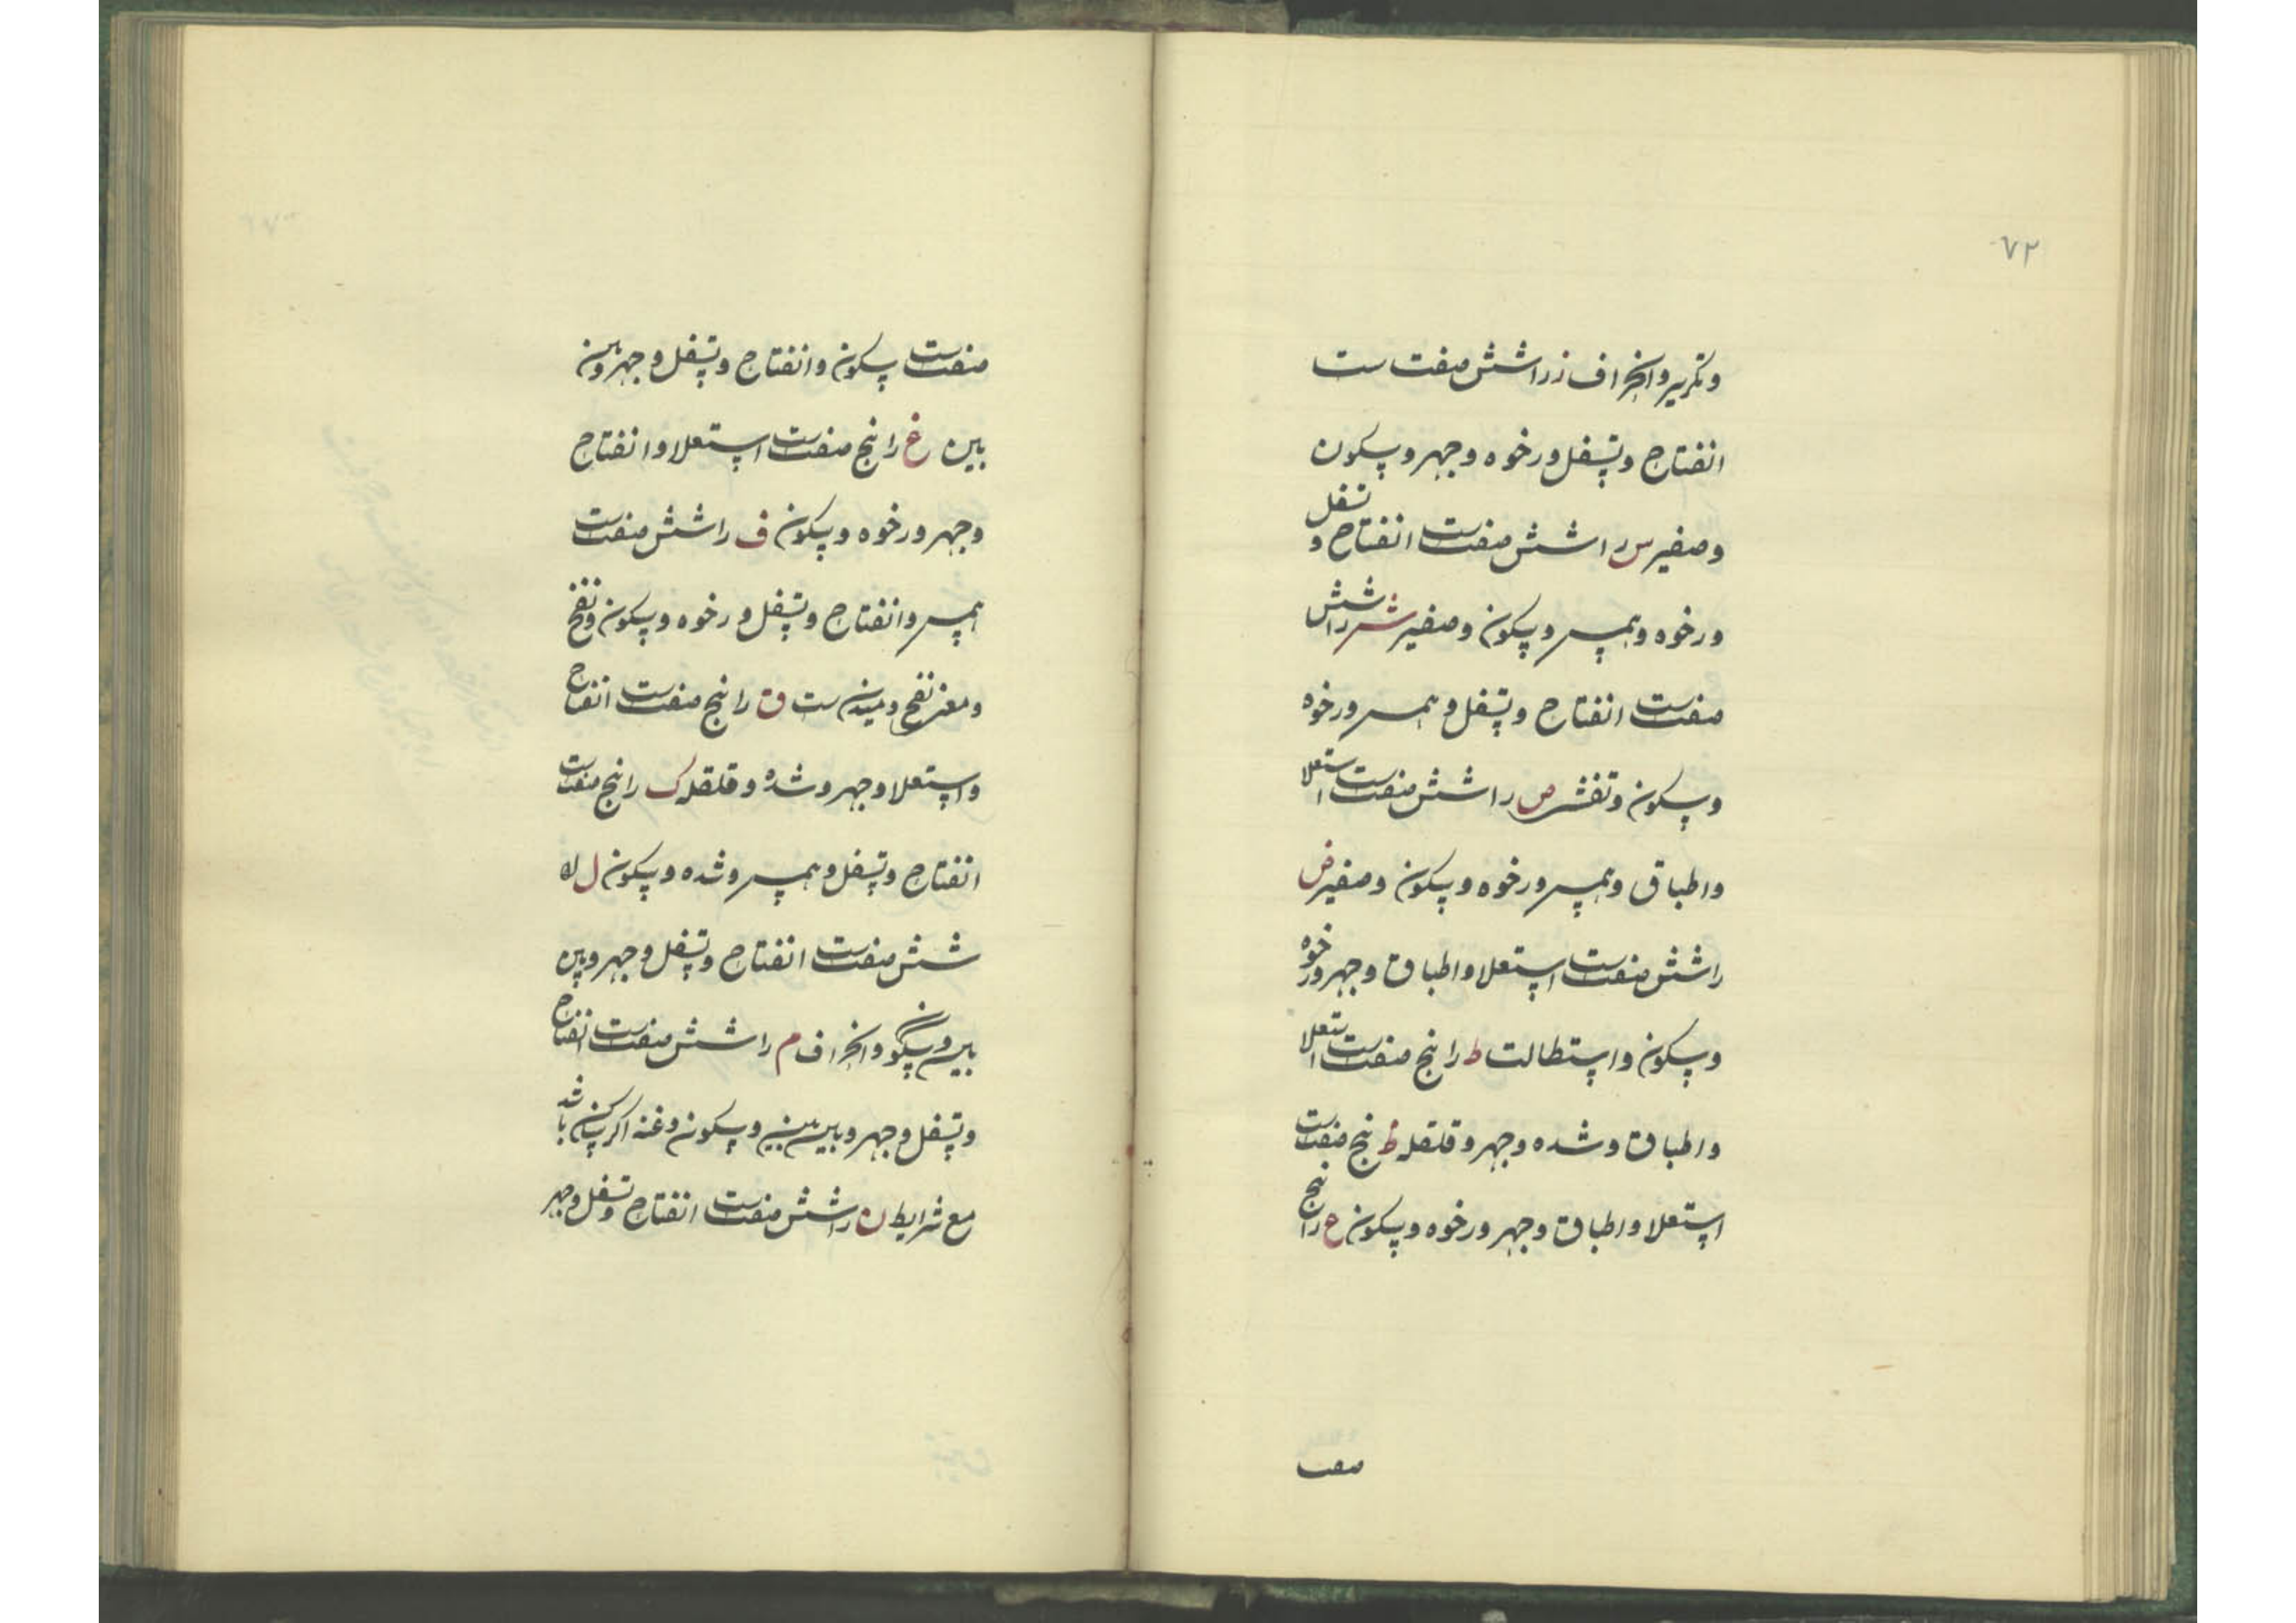 ۷۲
وتکریر وانحراف ز راشش صفت ست
انفتاح وتسفل ورخوه وجهر وسکون
وصفیر س راشش صفتست انفتاح و تسفل
ورخوه وهمس وسکون وصفیر ش راشش
صفتست انفتاح وتسفل وهمس ورخوه
وسکون وتفشی ص راشش صفتست استعلا
واطباق وهمس ورخوه وسکون وصفیر ض
راشش صفتست استعلا واطباق وجهر ورخوه
وسکون واستطالت ط را پنج صفتست استعلا
واطباق وشده وجهر وقلقله ظ پنج صفتست
استعلا واطباق وجهر ورخوه وسکون ع را پنج
صفت
صفتست سکون وانفتاح وتسفل وجهر وبین
بین غ را پنج صفتست استعلا وانفتاح
وجهر ورخوه وسکون ف راشش صفتست
همس وانفتاح وتسفل ورخوه وسکون ونفخ
ومعنی نفخ دمیدن ست ق را پنج صفتست انفتاح
واستعلا وجهر وشده وقلقله ک را پنج صفتست
انفتاح وتسفل وهمس وشده وسکون ل را
شش صفتست انفتاح وتسفل وجهر وبین
بین وسکون وانحراف م راشش صفتست انفتاح
وتسفل وجهر وبین بین وسکون وغنه اکر ساکن باشد
مع شرایط ن راشش صفتست انفتاح وتسفل وجهر